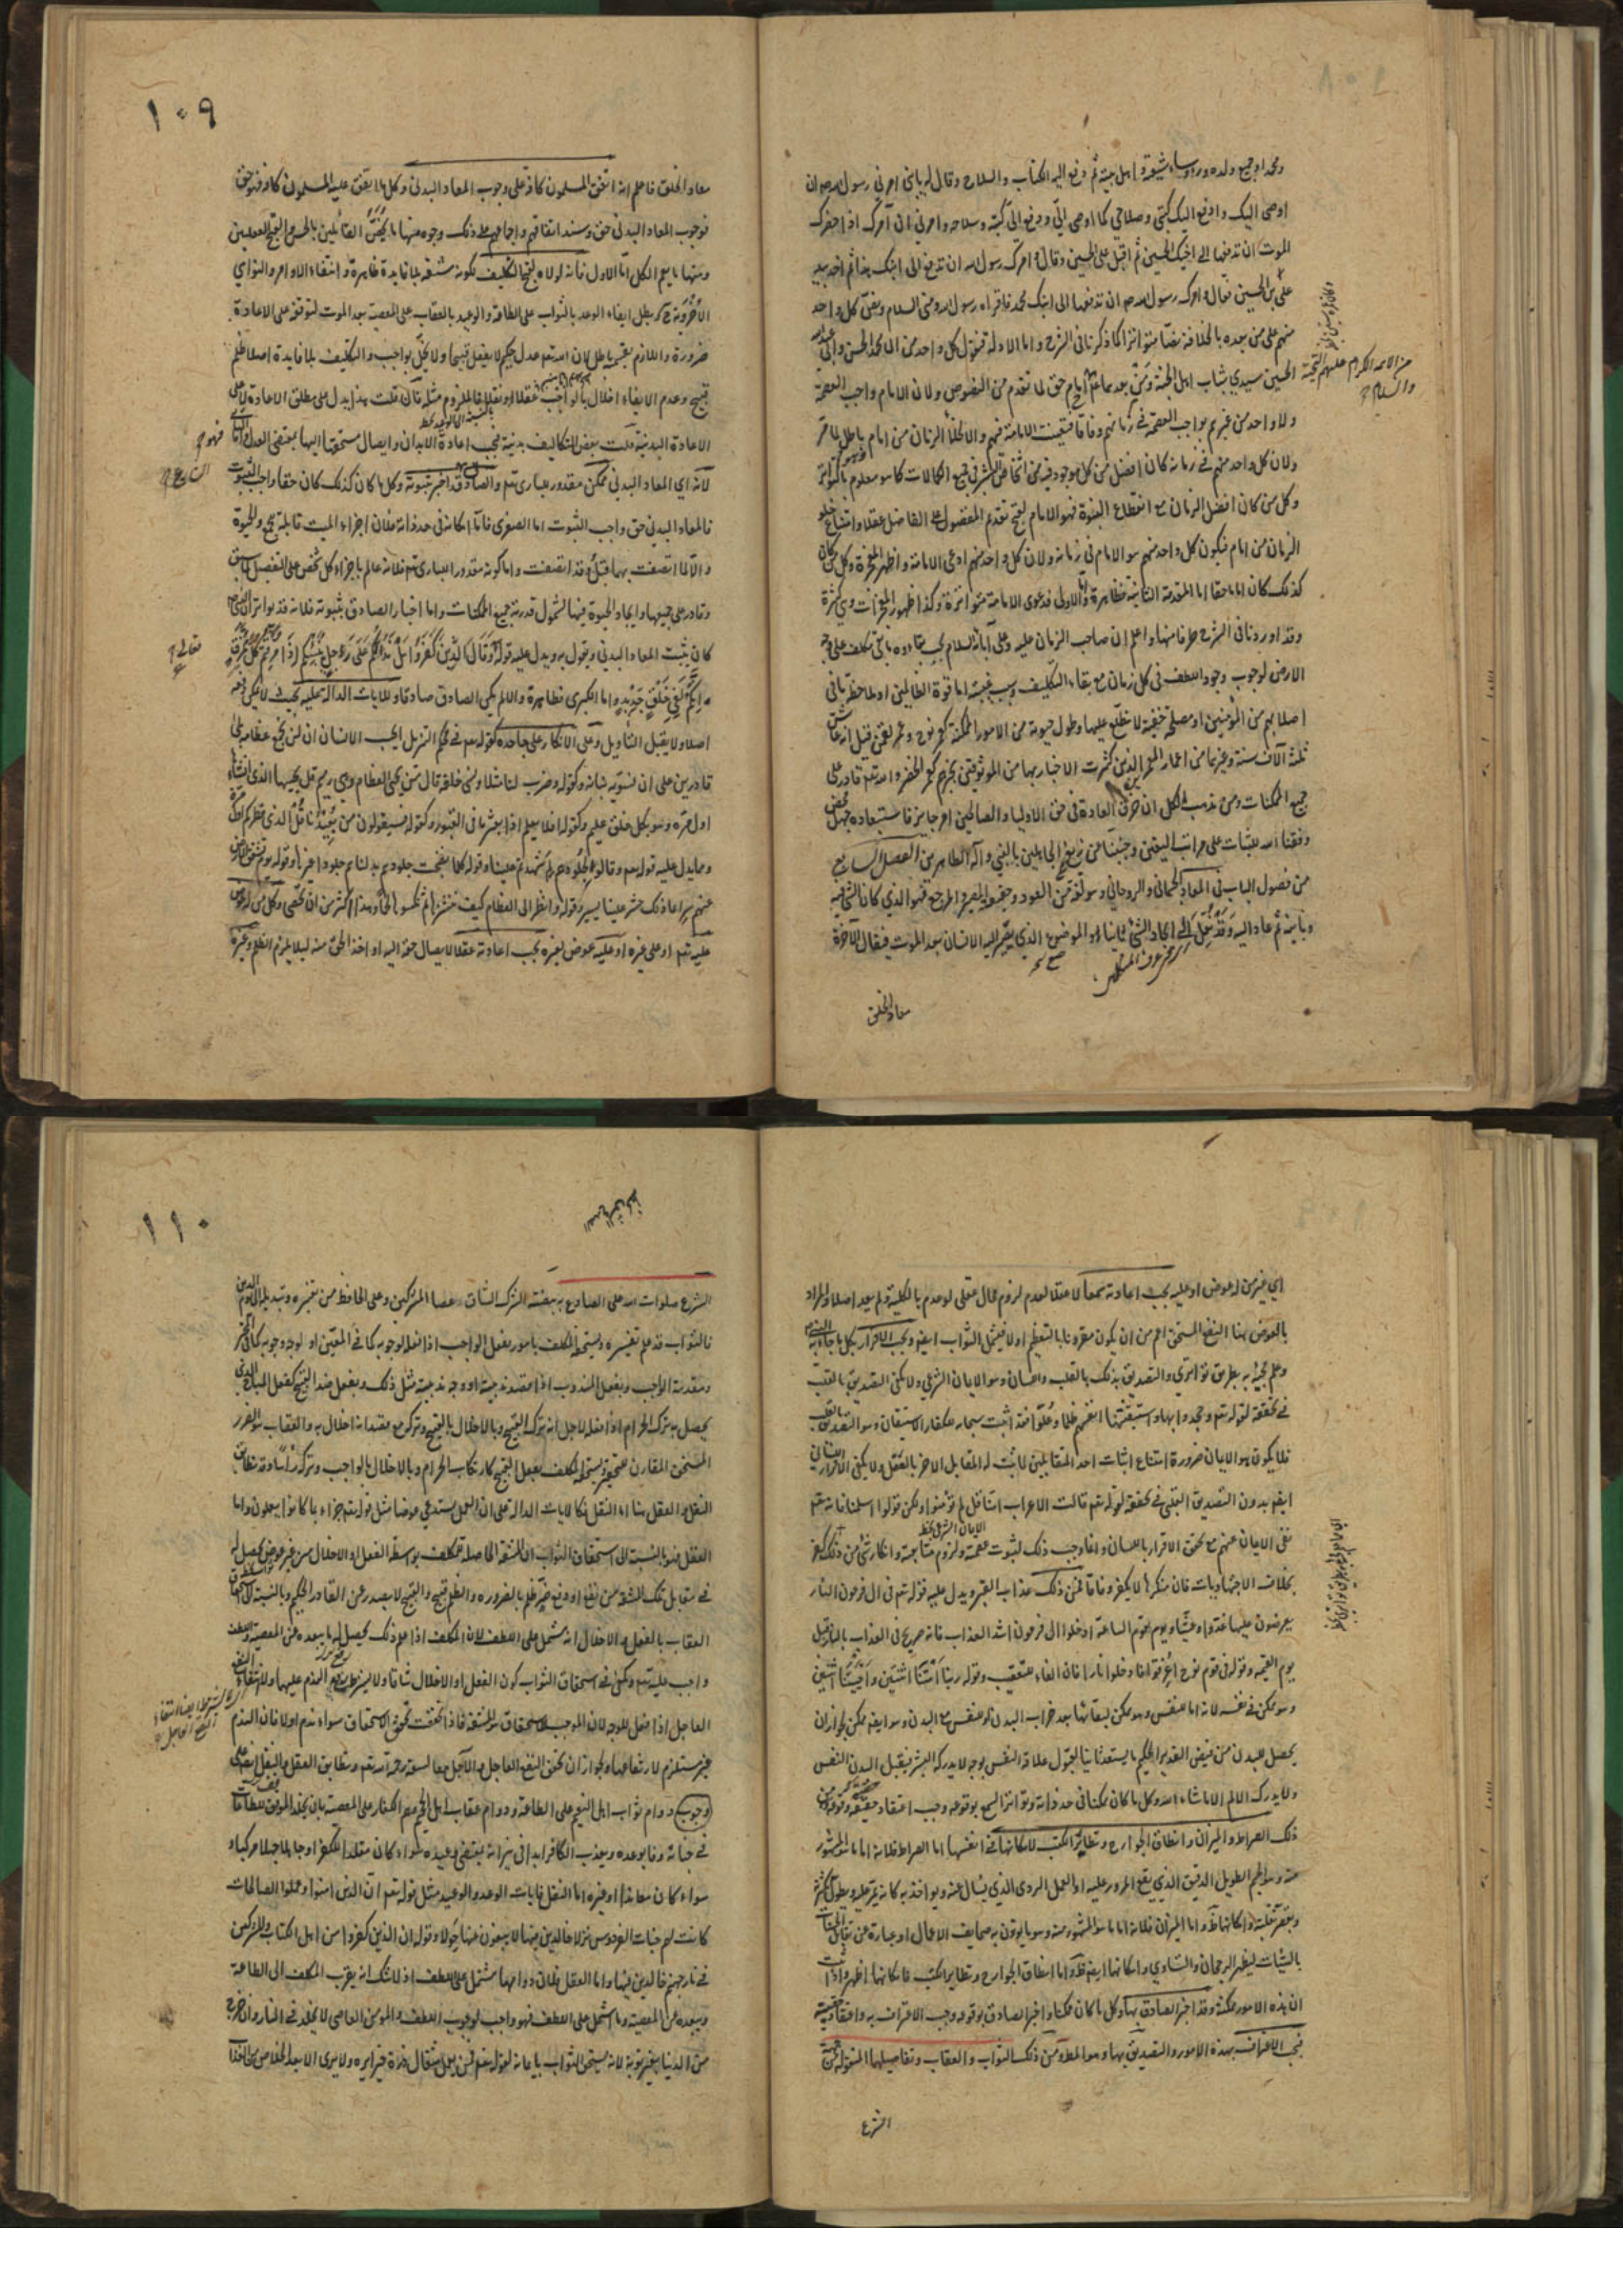 ومحمدا وجميع ولده ورؤساء شيعته و اهل بيته ثم دفع اليه الكتاب والسلاح وقال له يا بنى امرنى رسول الله ص ان
اوصى اليك وادفع اليك كتبى وسلاحى كما اوصى الىّ ودفع الىّ كتبه وسلاحه وامرنى ان آمرك اذا حضرك
الموت ان تدفعها الى اخيك الحسين ثم اقبل على الحسين وقال و امرك رسول الله ان تدفع الى ابنك هذا ثم اخذ بيد
على بن الحسين فقال و امرك رسول الله ص ان تدفعها الى ابنك محمد فاقراه رسول الله ومنى السلام
منهم على من بعده بالخلافة نصا متواترا كما ذكرنا فى الشرح واما الاولة
الحسين سيدى شباب اهل الجنة حق لما تقدم من النصوص ولان الامام واجب العصمة
ولا واحد من غيرهم بواجب العصمة فى زمانهم وفاقا فتعينت الامامة فيهم والا لخلا الزمان من امام
ولان كل واحد منهم فى زمانه كان افضل من كل موجود فيه فى جميع الكمالات كما هو معلوم
وكل من كان افضل الزمان مع انقطاع النبوة فهو الامام لقبح تقديم المفضول على الفاضل عقلا وامتناع خلو
الزمان من امام فيكون كل واحد منهم هو الامام فى زمانه ولان كل واحد منهم ادعى الامامة واظهر المعجزة وكل من كان
كذلك كان اماما حقا اما المقدمة الثانية فظاهرة واما الاولى فدعوى الامامة متواترة وكذا ظهور المعجزات وهى كثيرة
وقد اوردنا فى الشرح طرفا منها واعلم ان صاحب الزمان عليه وعلى آبائه السلام
الارض لوجوب وجود اللطف فى كل زمان مع بقاء التكليف وسبب غيبته اما قوة الظالمين او ملاحظة ما فى
اصلابهم من المؤمنين او مصلحة خفية لا نطلع عليها وطول حيوته من الامور الممكنة كعمر نوح وعمر لقمن قيل انه عاش
ثلثة الآف سنة وغيرهما من اعمار المعمرين الذين كثرت الاخبار بها من الموثوقين بخبرهم كعمر الخضر والله تعم قادر على
جميع الممكنات ومن مذهب الكل ان خرق العادة فى حق الاولياء والصالحين امر جايز فاستبعاده جهل محض
وفقنا الله للثبات على مراتب اليقين وجنبنا من زيغ الجاهلين بالنبى وآله الطاهرين الفصل السابع
من فصول الباب فى المعاد الجسمانى والروحانى وهو لغة من العود وحقيقته المصير والمرجع فهو الذى كان الشئ فيه
وباينه ثم عاد اليه وقد نقل الى ايجاد الشئ ثانيا او الموضوع الذى يصير اليه الانسان بعد الموت فيقال الآخرة
معاد الخلق
من الائمة الكرام عليهم التحية
والسلام
١٠٩
معاد الخلق فاعلم انه اتفق المسلمون كافة على وجوب المعاد البدنى وكل ما يتفق عليه المسلمون كافة فهو حق
فوجوب المعاد البدنى حق وسند اتفاقهم واجماعهم على ذلك وجوه منها ما يخص القائلين بالحسن والقبح العقليين
ومنها ما يعم الكل اما الاول فانه لولاه لقبح التكليف لكونه مشقة بلا فايدة ظاهرة و انتفاء الاوامر والنواهى
الاخروية ح بطل ايفاء الوعد بالثواب على الطاعة والوعيد بالعقاب على المعصية بعد الموت لتوقفه على الاعادة
ضرورة واللازم بقسميه باطل لان الله تعم عدل حكيم لا يفعل قبيحا ولا يخل بواجب والتكليف بلا فايدة اصلا ظلم
قبيح وعدم الايفاء اخلال بالواجب عقلا او نقلا فالملزوم مثله فان قلت هذا يدل على مطلق الاعادة لا على
الاعادة البدنية قلت بعض التكاليف بدنية يجب اعادة الابدان وايصال مستحقها اليها بمقتضى العدل
لانه اى المعاد البدنى ممكن مقدور للبارى تعم والصادق قد اخبر بثبوته وكل ما كان كذلك كان حقا واجب الثبوت
فالمعاد البدنى حق واجب الثبوت اما الصغرى فاما امكانه فى حد ذاته فلان اجزاء الميت قابلة للجمع والحيوة
والا لما اتصفت بهما قبل وقد اتصفت واما كونه مقدورا للبارى تعم فلانه عالم باجزاء كل شخص على التفصيل لما سبق
وقادر على جمعها وايجاد الحيوة فيها لشمول قدرته جميع الممكنات واما اخبار الصادق بثبوته فلانه قد تواتر
كان يثبت المعاد البدنى ويقول به ويدل عليه قوله وَقَالَ الَّذِينَ كَفَرُوا هَلْ نَدُلُّكُمْ عَلَى رَجُلٍ يُنَبِّئُكُمْ إِذَا مُزِّقْتُمْ كُلَّ مُمَزَّقٍ
إِنَّكُمْ لَفِي خَلْقٍ جَدِيدٍ واما الكبرى فظاهرة والا لم يكن الصادق صادقا وللايات الدالة عليه بحيث لا يمكن
اصلا ولا يقبل التأويل وعلى الانكار على جاحده كقوله تعم فى محكم التنزيل ايحسب الانسان ان لن نجمع عظامه بلى
قادرين على ان نسوى بنانه وكقوله وضرب لنا مثلا ونسى خلقه قال من يحيى العظام وهى رميم قل يحييها الذى انشأها
اول مرة وهو بكل خلق عليم وكقوله افلا يعلم اذا بعثر ما فى القبور وكقوله فسيقولون من يعيدنا قل الذى فطركم اول مرة
ومما يدل عليه قوله تعم وقالوا لجلودهم لم شهدتم علينا وقوله كلما نضجت جلودهم بدلناهم جلودا غيرها وقوله يوم تشقق الارض
عنهم سراعا ذلك حشر علينا يسير وقوله وانظر الى العظام كيف ننشزها ثم نكسوها لحما وهذا اكثر من ان يحصى وكل من له عوض
عليه تعم او على غيره او عليه عوض لغيره يجب اعادته عقلا لايصال حقه اليه او اخذ الحق منه لئلا يلزم الظلم وغيره
اى غير من له عوض او عليه يجب اعادته سمعا لا عقلا لعدم لزوم محال عقلى لو عدم بالكلية ولم يعد اصلا والمراد
بالعوض هنا النفع المستحق اعم من ان يكون مقرونا بالتعظيم او لا فيشمل الثواب ايضا ويجب الاقرار بكل ما جاء به النبى ص
وعلم مجيئه به بطريق تواترى والتصديق بذلك بالقلب واللسان وهو الايمان الشرعى ولا يكفى التصديق بالقلب
فى تحققه لقوله تعم وجحدوا بها واستيقنتها انفسهم ظلما وعلوا فقد اثبت سبحانه للكفار الاستيقان وهو التصديق بالقلب
فلا يكون هو الايمان ضرورة امتناع اثبات احد المتقابلين لما يثبت له المقابل الاخر بالفعل ولا يكفى الاقرار اللسانى
ايضا بدون التصديق القلبى فى تحققه لقوله تعم قالت الاعراب آمنا قل لم تؤمنوا ولكن قولوا اسلمنا فانه تعم
نفى الايمان عنهم مع تحقق الاقرار باللسان وانما وجب ذلك لثبوت عصمته ولزوم متابعته وانكار شئ من ذلك كفر
بخلاف الاجتهاديات فان منكرها لا يكفر وفاقا فمن ذلك عذاب القبر ويدل عليه قوله تعم فى آل فرعون النار
يعرضون عليها غدوا وعشيا ويوم تقوم الساعة ادخلوا آل فرعون اشد العذاب فانه صريح فى العذاب بالنار قبل
يوم القيمة وقوله فى قوم نوح اغرقوا فادخلوا نارا فان الفاء للتعقيب وقوله ربنا امتنا اثنتين واحييتنا اثنتين
وهو ممكن فى نفسه لانه اما للنفس وهو ممكن لبقائها بعد خراب البدن او للنفس مع البدن وهو ايضا ممكن لجواز ان
يحصل للبدن من فيض القدير الحكيم ما يستعد ثانيا لقبول علاقة النفس بوجه لا يدركه البشر فيقبل البدن النفس
ولا يدركه الا لم الا ما شاء الله وكل ما كان ممكنا فى حد ذاته وتواتر السمع بوقوعه وجب اعتقاد حقيته
ذلك الصراط والميزان وانطاق الجوارح وتطاير الكتب لامكانها فى انفسها اما الصراط فلانه اما ما هو المشهور
منه وهو الجسم الطويل الدقيق الذى يقع المرور عليه او العمل الردى الذى يسأل عنه ويؤاخذ به كانه يمر عليه ويطول
واما الميزان فلانه اما ما هو المشهور منه وهو ما يوزن به صحايف الاعمال او عبارة عن تقابل الحسنات
بالسيئات ليظهر الرجحان والتساوى وامكانها ايضا ظ واما انطاق الجوارح وتطاير الكتب فامكانها اظهر
ان هذه الامور ممكنة وقد اخبر الصادق بها وكل ما كان ممكنا واخبر الصادق بوقوعه وجب الاعتراف به واعتقاد حقيته
فيجب الاعتراف بهذه الامور والتصديق بها وهو المط ومن ذلك الثواب والعقاب وتفاصيلهما المنقولة من جهة
الشرع
١١٠
الشرع صلوات الله على الصادع به
فالثواب قد علم تفسيره ويستحقه المكلف بامور بفعل الواجب اذا فعله لوجوبه كما فى المعين او لوجه وجوبه
ومقدمة الواجب وبفعل المندوب اذا قصد ندبيته او وجه ندبيته مثل ذلك وبفعل ضد القبيح كفعل المباح الذى
يحصل به ترك الحرام اذا فعله لاجل انه ترك القبيح وبالاخلال بالقبيح وتركه مع قصد انه اخلال به والعقاب هو الضرر
المستحق المقارن للتحقير ويستحقه المكلف بفعل القبيح كارتكاب الحرام وبالاخلال بالواجب وتركه رأسا وقد تطابق
النقل والعقل هنا اما النقل فكالايات الدالة على ان العمل يستدعى عوضا مثل قوله تعم جزاء بما كانوا يعملون واما
العقل فهو بالنسبة الى استحقاق الثواب ان المشقة الحاصلة للمكلف بواسطة الفعل او الاخلال من غير عوض يحصل له
فى مقابل تلك المشقة من نفع او دفع ضر ظلم بالضرورة والظلم قبيح والقبيح لا يصدر عن القادر الحكيم وبالنسبة الى استحقاق
العقاب بالفعل والاخلال انه مشتمل على اللطف لان المكلف اذا علم ذلك يحصل له ما يبعده عن المعصية واللطف
واجب عليه تعم ويكفى فى استحقاق الثواب كون الفعل او الاخلال شاقا ولا يشترط رفع الندم عليها ولا انتفاء النفع
العاجل اذا فعل للوجه لان الموجب للاستحقاق هو المشقة فاذا تحققت تحقق الاستحقاق سواء ندم او لا فان الندم
غير مستلزم لارتفاعها ولجواز ان يحقق النفع العاجل والآجل معا لسعة رحمة الله تعم وتطابق العقل والنقل ايضا على
وجوب دوام ثواب اهل النعيم على الطاعة ودوام عقاب اهل الجحيم هم الكفار على المعصية بان يخلد المؤمن
فى جنانه وفاء بوعده ويعذب الكافر ابدا فى نيرانه بمقتضى وعيده سواء كان مقلدا للكفر او جاهلا جهلا مركبا و
سواء كان معاندا او غيره اما النقل فايات الوعد والوعيد مثل قوله تعم ان الذين امنوا وعملوا الصالحات
كانت لهم جنات الفردوس نزلا خالدين فيها لا يبغون عنها حولا وقوله ان الذين كفروا من اهل الكتاب والمشركين
فى نار جهنم خالدين فيها واما العقل فلان دوامهما مشتمل على اللطف اذ لا شك انه يقرب المكلف الى الطاعة
ويبعده عن المعصية وما اشتمل على اللطف فهو واجب لوجوب اللطف والمؤمن العاصى لا يخلد فى النار وان خرج
من الدنيا بغير توبة لانه يستحق الثواب بايمانه لقوله تعم فمن يعمل مثقال ذرة خيرا يره ولا يرى الا بعد الخلاص من العذاب